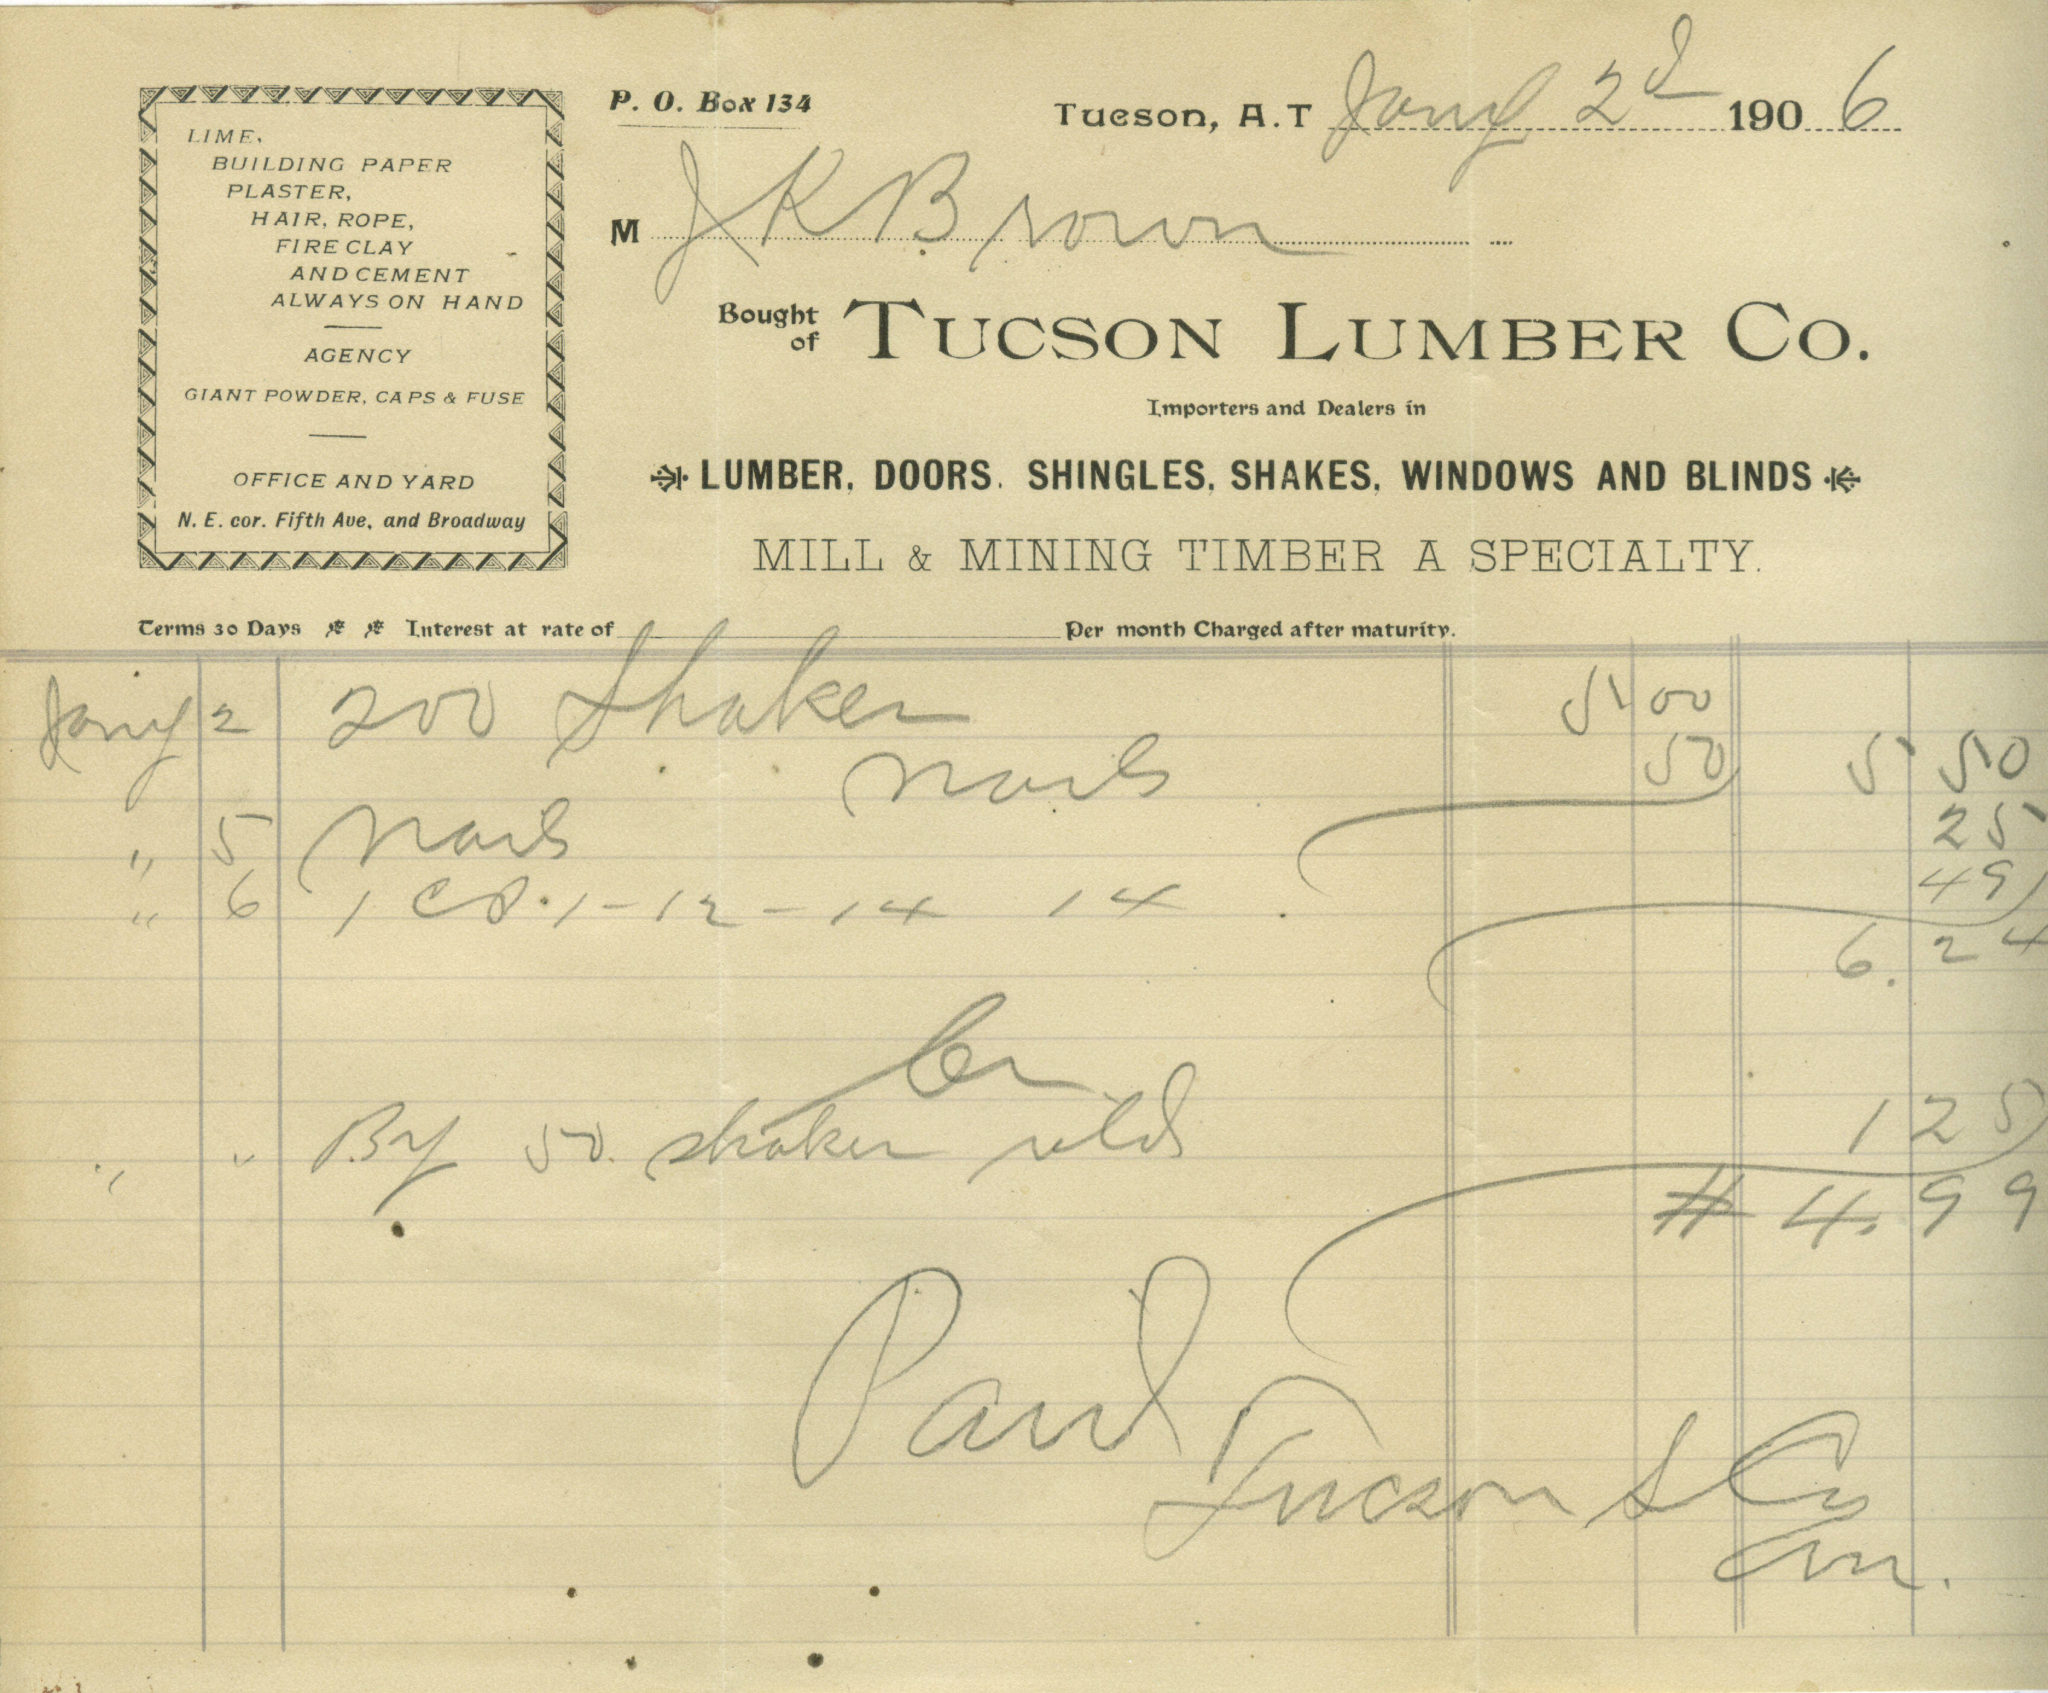 LIME,
BUILDING PAPER
PLASTER,
HAIR, ROPE,
FIRE CLAY
AND CEMENT
ALWAYS ON HAND
AGENCY
GIANT POWDER, CAPS & FUSE
OFFICE AND YARD
N. E. cor. Fifth Ave, and Broadway
P. O. Box 134
Tucson, A.T Jany 2d 1906
M J K Brown
Bought of TUCSON LUMBER CO.
Importers and Dealers in
LUMBER, DOORS. SHINGLES, SHAKES, WINDOWS AND BLINDS
MILL & MINING TIMBER A SPECIALTY.
Terms 30 Days Interest at rate of Per month Charged after maturity.
Jany 2 200 Shakes 5 00
Nails 50 5 50
" 5 Nails 25
" 6 1 - 12 - 14 14 49
6.24
Cr
" " By 50 shakes 1 25
# 4.99
Paid
Tucson L Co